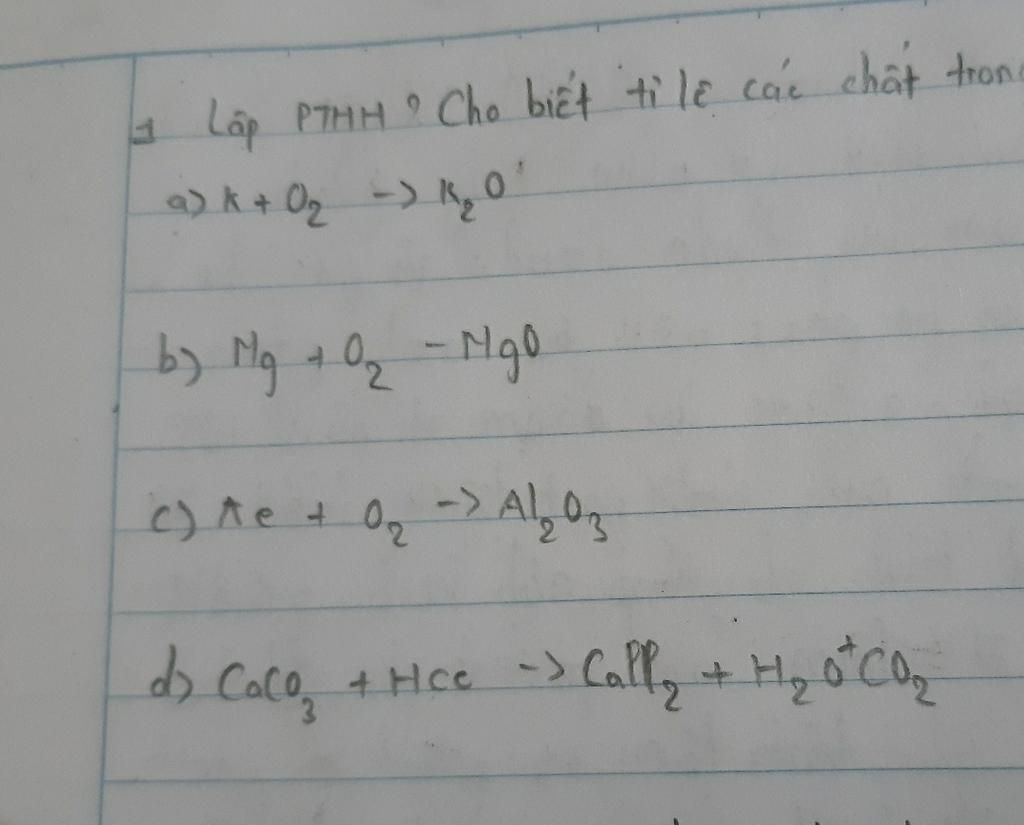 1 Lập PTHH? Cho biết tỉ lệ các chất tron
a) K + O2 -> K2O
b) Mg + O2 - MgO
c) Ae + O2 -> Al2O3
d) CaCO3 + HCl -> CaPP2 + H2O + CO2